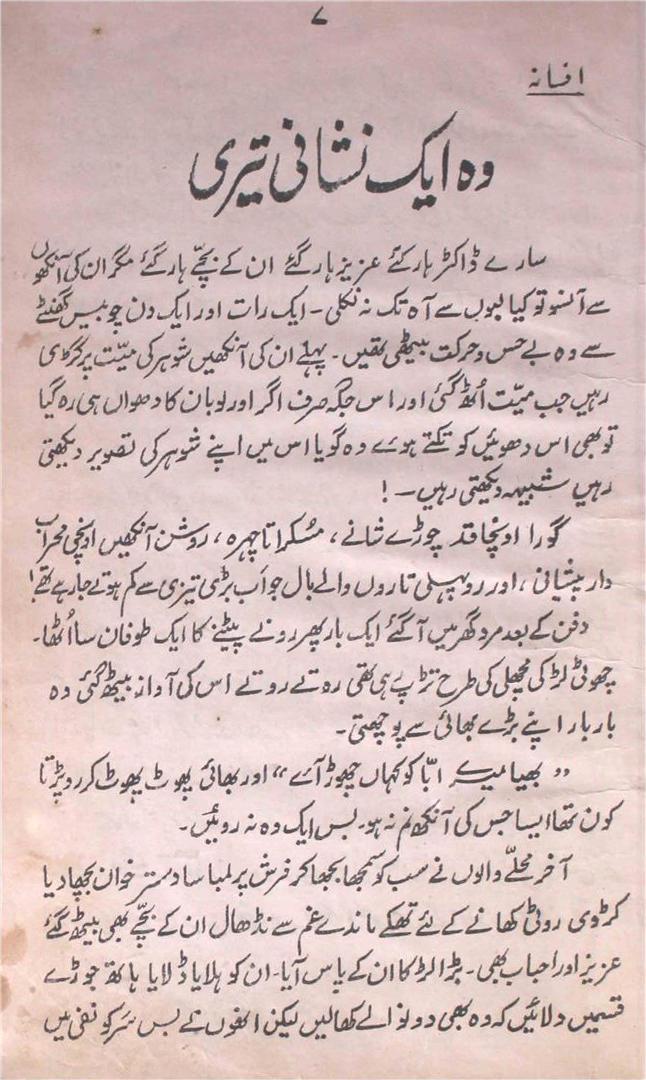 ۷
افسانہ
وہ ایک نشانی تیری
سارے ڈاکٹر ہار گئے عزیز ہار گئے ان کے بچّے ہار گئے مگر ان کی آنکھوں
سے آنسو تو کیا لبوں سے آہ تک نہ نکلی۔ ایک رات اور ایک دن چوبیس گھنٹے
سے وہ بے حس و حرکت بیٹھی تھیں۔ پہلے ان کی آنکھیں شوہر کی میّت پر گڑی
رہیں جب میّت اُٹھ گئی اور اس جگہ صرف اگر اور لوبان کا دھواں ہی رہ گیا
تو بھی اس دھوئیں کو تکتے ہوے وہ گویا اس میں اپنے شوہر کی تصویر دیکھتی
رہیں شبیہہ دیکھتی رہیں ـــ !
گورا اونچا قد چوڑے شانے، مسُکراتا چہرہ، روشن آنکھیں اونچی محراب
دار پیشانی، اور روپہلی تاروں والے بال جو اَب بڑی تیزی سے کم ہوتے جارہے تھے!
دفن کے بعد مرد گھر میں آگئے ایک بار پھر رونے پیٹنے کا ایک طوفان سا اُٹھا۔
چھوٹی لڑکی مچھلی کی طرح تڑپ رہی تھی روتے روتے اس کی آواز بیٹھ گئی وہ
بار بار اپنے بڑے بھائی سے پوچھتی۔
”بھیا میرے ابّا کو کہاں چھوڑ آے“ اور بھائی پھوٹ پھوٹ کر رو پڑتا
کون تھا ایسا جس کی آنکھ نم نہ ہو۔ بس ایک وہ نہ روئیں۔
آخر محلّے والوں نے سب کو سمجھا بجھا کر فرش پر لمبا سا دستر خوان بچھا دیا
کڑوی روٹی کھانے کے لئے تھکے ماندے غم سے نڈھال ان کے بچّے بھی بیٹھ گئے
عزیز اور احباب بھی۔ بڑا لڑکا ان کے پاس آیا۔ ان کو ہلایا ڈلایا ہاتھ جوڑے
قسمیں دلائیں کہ وہ بھی دو نوالے کھالیں لیکن انھوں نے بس سَر کو نفی میں